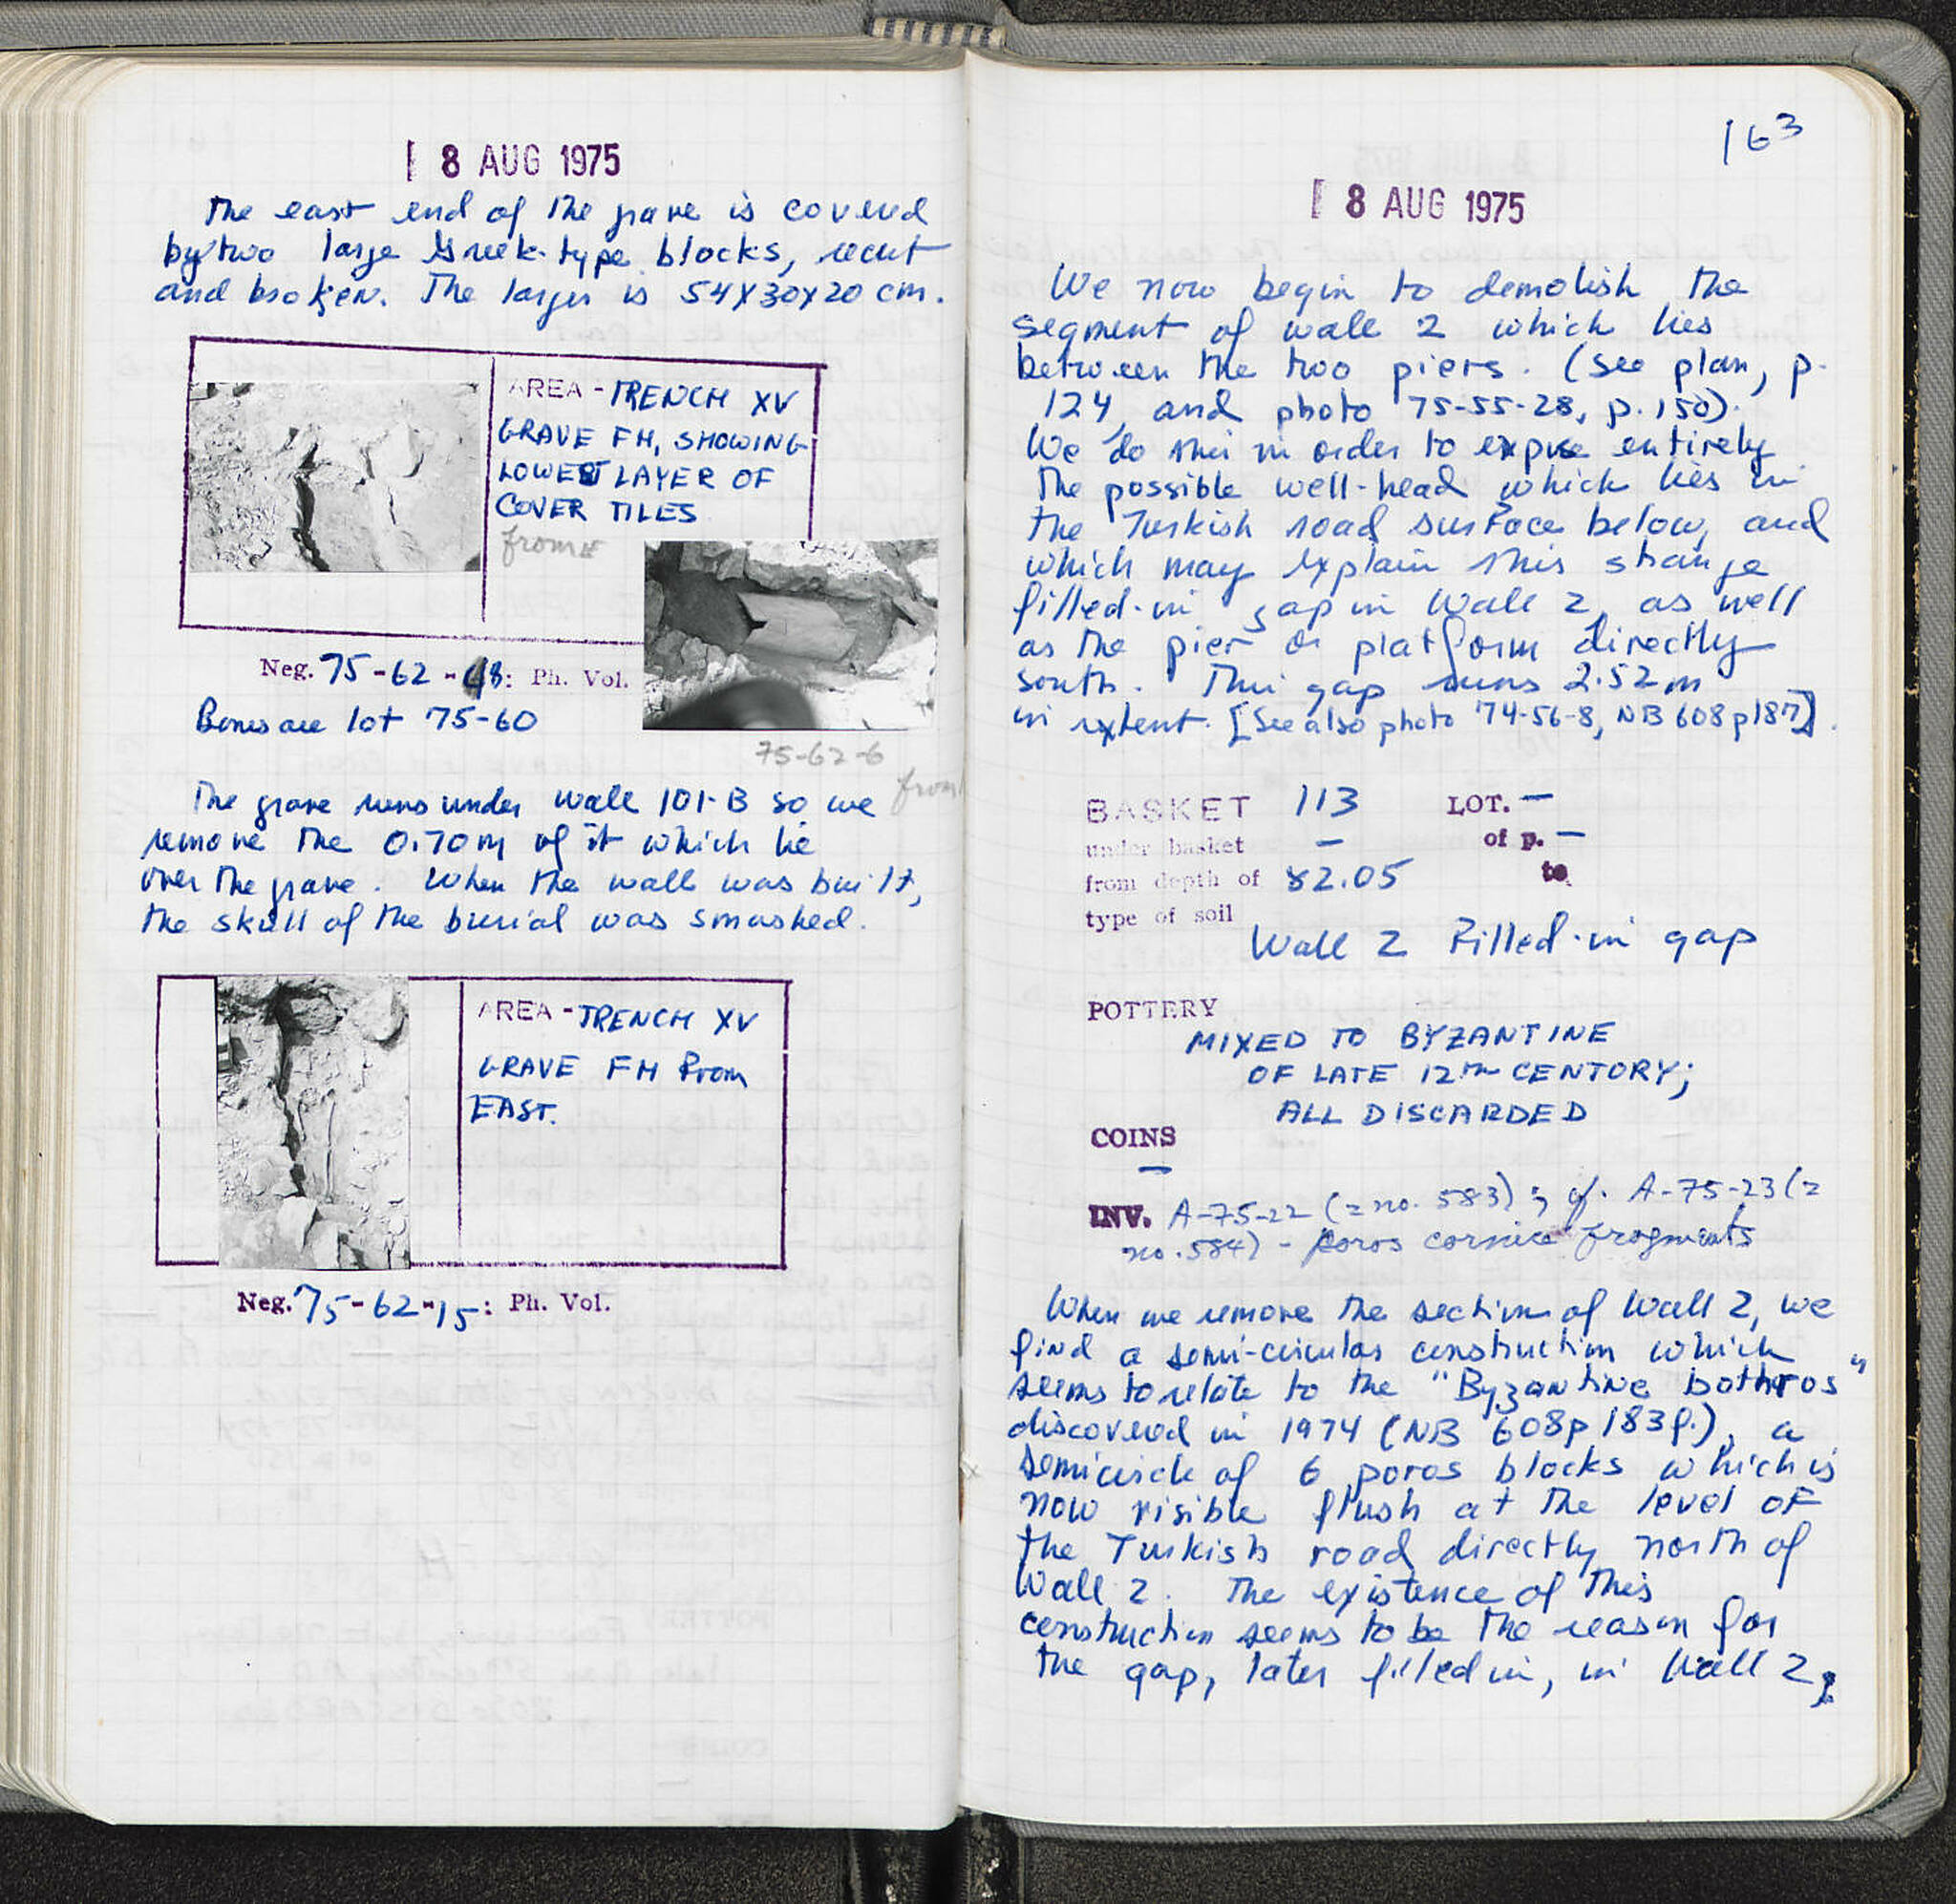 8 AUG 1975
The east end of the grave is covered
by two large Greek-type blocks, recut
and broken. The larger is 54x30x20 cm.
AREA - TRENCH XV
GRAVE FH, SHOWING
LOWEST LAYER OF
COVER TILES
from
Neg. 75-62-48: Ph. Vol.
Bones are lot 75-60
75-62-6
from
The grave runs under wall 101-B so we
remove the 0.70m of it which lie
over the grave. When the wall was built,
the skull of the burial was smashed.
AREA - TRENCH XV
GRAVE FH From
EAST.
Neg. 75-62-15: Ph. Vol.
163
8 AUG 1975
We now begin to demolish the
segment of wall 2 which lies
between the two piers. (See plan, p.
124, and photo 75-55-28, p. 150).
We do this in order to expose entirely
the possible well-head which lies in
the Turkish road surface below, and
which may explain this strange
filled-in gap in Wall 2, as well
as the pier or platform directly
south. This gap runs 2.52m
in extent. [See also photo 74-56-8, NB 608 p187].
BASKET 113 LOT. —
under basket — of p. —
from depth of 82.05 to
type of soil
Wall 2 Filled-in gap
POTTERY
MIXED TO BYZANTINE
OF LATE 12TH CENTORY;
ALL DISCARDED
COINS
—
INV. A-75-22 (= no. 583); cf. A-75-23 (=
no. 584) - poros cornice fragments
When we remove the section of Wall 2, we
find a semi-circular construction which
seems to relate to the "Byzantine bothros"
discovered in 1974 (NB 608p 183f.), a
semicircle of 6 poros blocks which is
now visible flush at the level of
the Turkish road directly north of
Wall 2. The existence of this
construction seems to be the reason for
the gap, later filled in, in Wall 2;